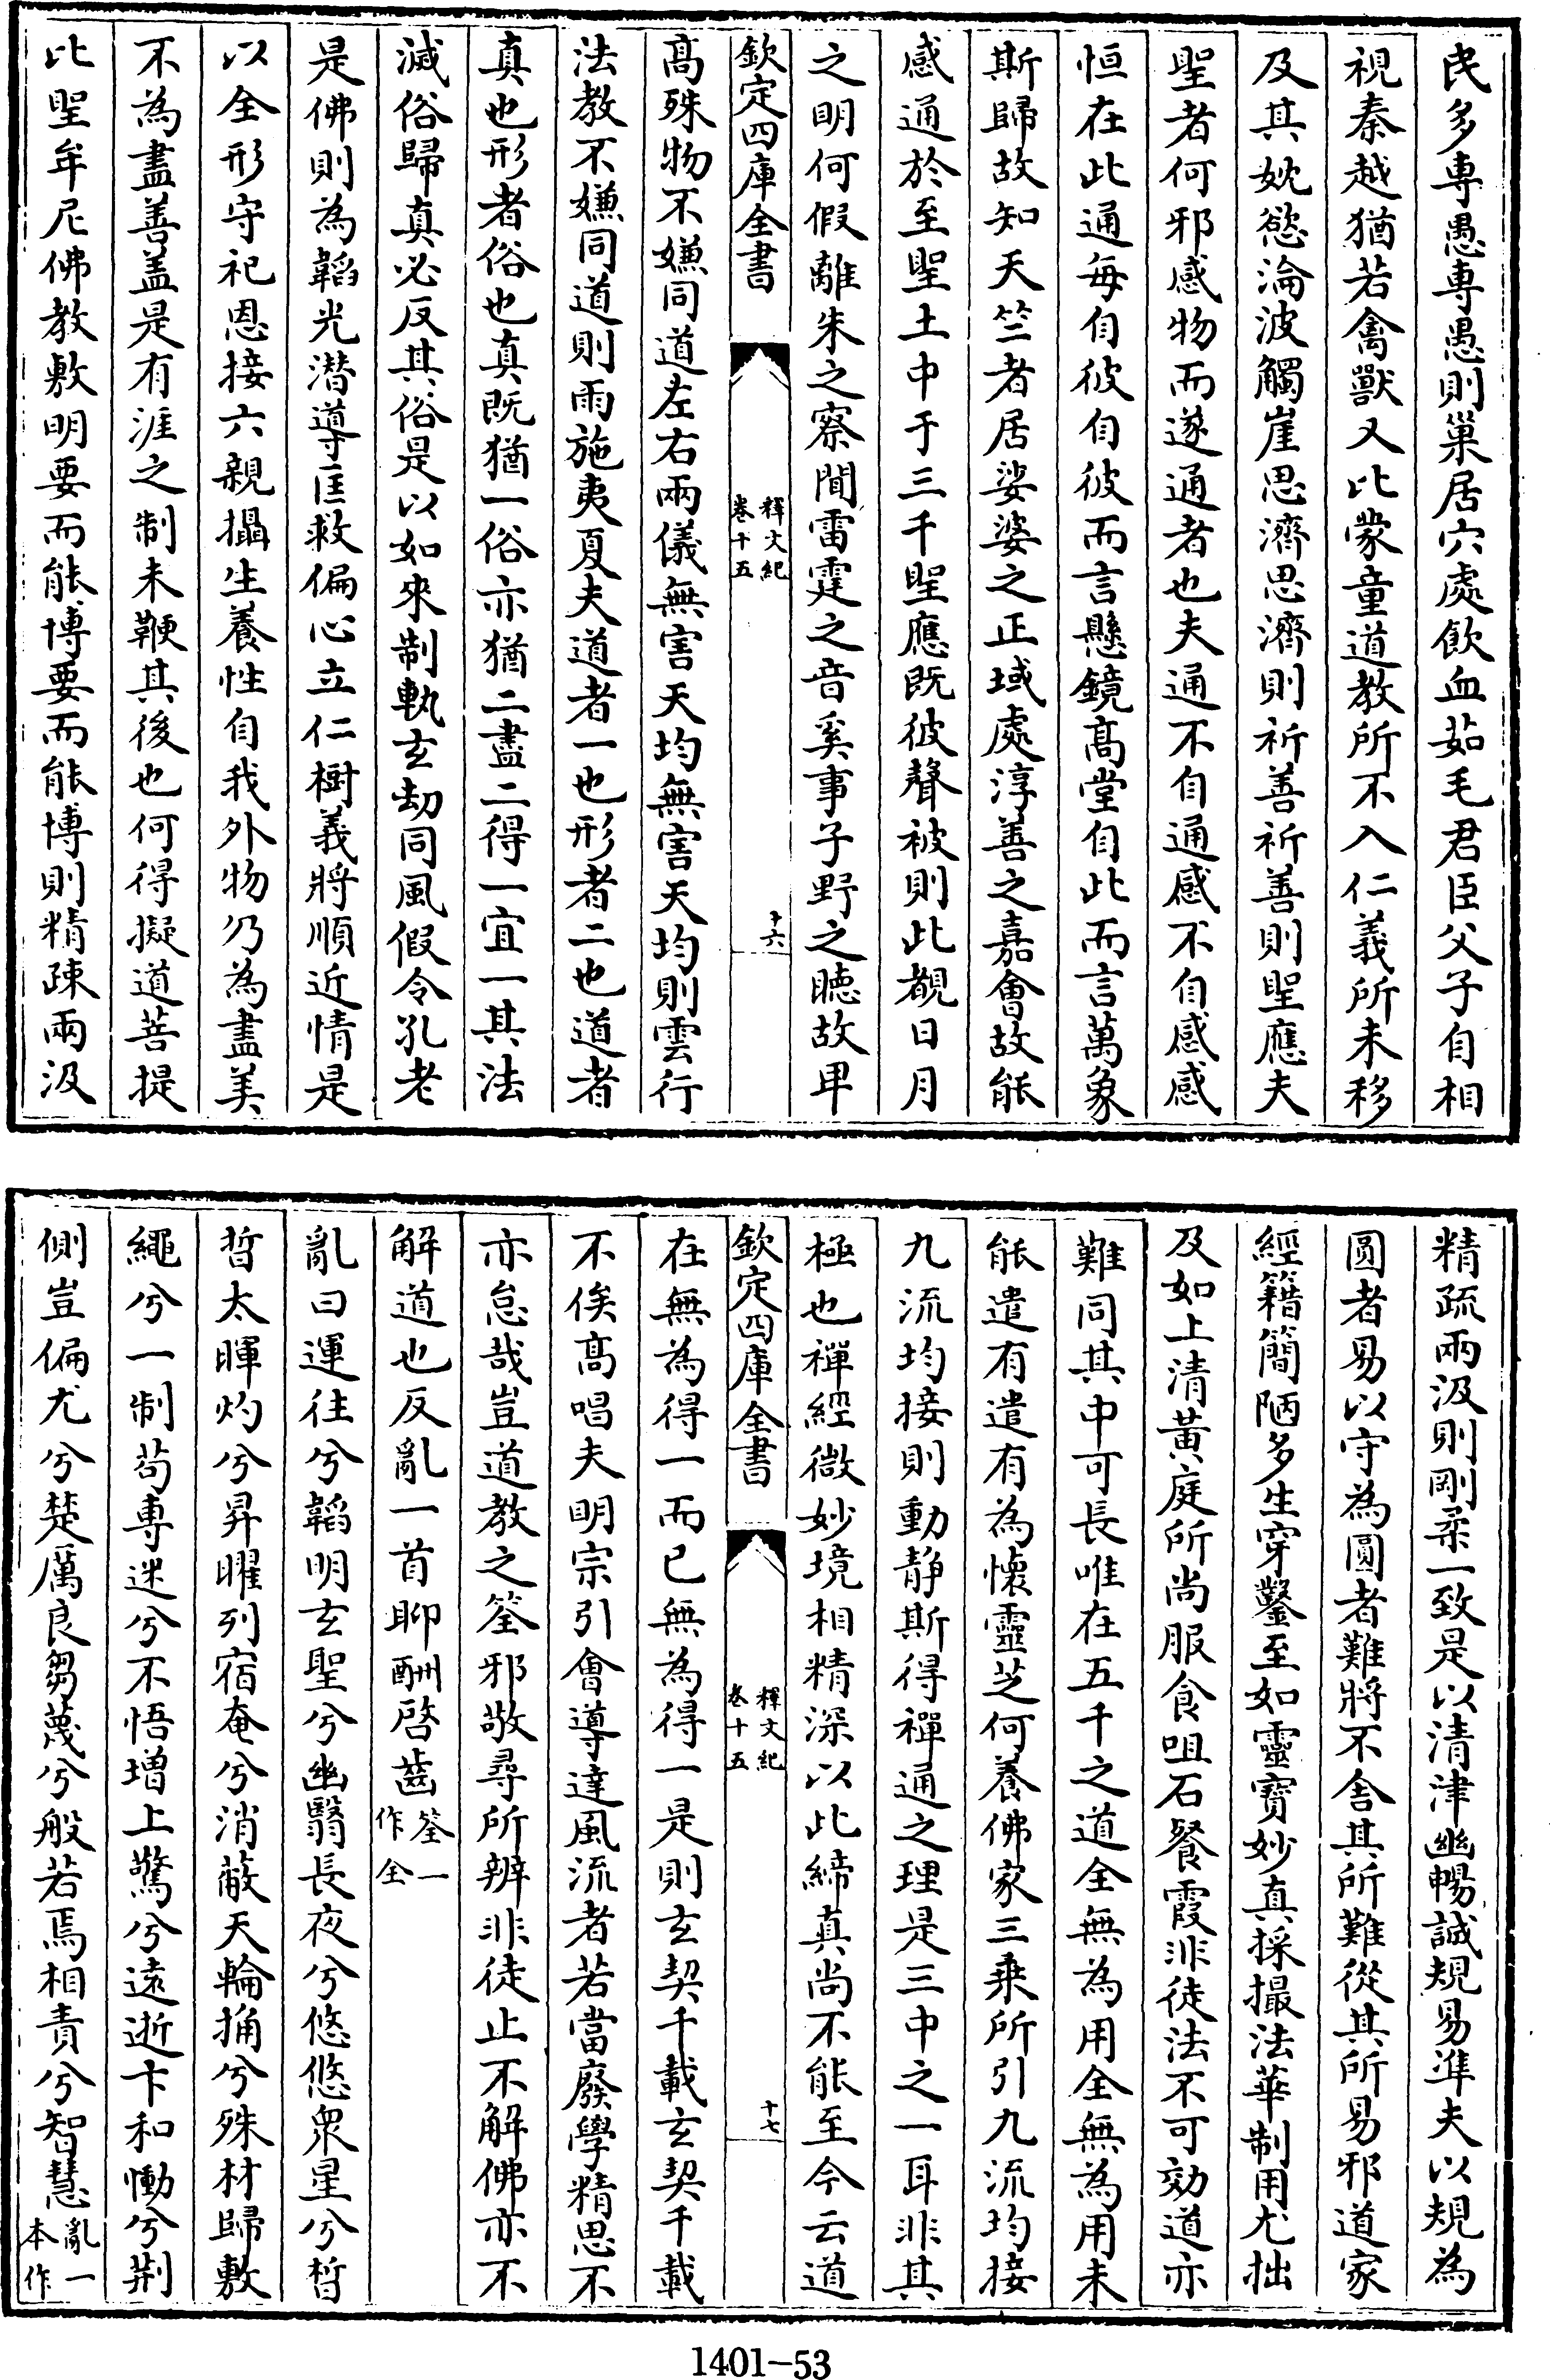 民多專愚專愚則巢居穴處飲血茹毛君臣父子自相
視秦越猶若禽獸又比蒙童道教所不入仁義所未移
及其媅慾淪波觸崖思濟思濟則祈善祈善則聖應夫
聖者何邪感物而遂通者也夫通不自通感不自感感
恒在此通毎自彼自彼而言懸鏡髙堂自此而言萬象
斯歸故知天竺者居娑婆之正域處淳善之嘉會故能
感通於至聖土中于三千聖應既彼聲被則此覩日月
之明何假離朱之察聞雷霆之音奚事子野之聴故卑
欽定四庫全書
釋文紀
卷十五
十六
髙殊物不嫌同道左右兩儀無害天均無害天均則雲行
法教不嫌同道則雨施夷夏夫道者一也形者二也道者
真也形者俗也真既猶一俗亦猶二盡二得一宜一其法
滅俗歸真必反其俗是以如來制軌玄劫同風假令孔老
是佛則為韜光潛導匡救偏心立仁樹義將順近情是
以全形守祀恩接六親攝生養性自我外物乃為盡美
不為盡善盖是有涯之制未鞭其後也何得擬道菩提
比聖牟尼佛教敷明要而能博要而能博則精疎兩汲
精疏兩汲則剛柔一致是以清津幽暢誠規易準夫以規為
圓者易以守為圓者難將不舎其所難從其所易邪道家
經籍簡陋多生穿鑿至如靈寳妙真採撮法華制用尤拙
及如上清黄庭所尚服食咀石餐霞非徒法不可効道亦
難同其中可長唯在五千之道全無為用全無為用未
能遣有遣有為懐靈芝何養佛家三乗所引九流均接
九流均接則動静斯得禪通之理是三中之一耳非其
極也禪經微妙境相精深以此締真尚不能至今云道
欽定四庫全書
釋文紀
卷十五
十七
在無為得一而已無為得一是則玄契千載玄契千載
不俟髙唱夫明宗引會導達風流者若當廢學精思不
亦怠哉豈道教之筌邪敬尋所辨非徒止不解佛亦不
解道也反亂一首聊酬啓齒筌一作全
亂曰運往兮韜明玄聖兮幽翳長夜兮悠悠衆星兮晢
晢太暉灼兮昇曜列宿奄兮消蔽天輪捔兮殊材歸敷
繩兮一制茍專迷兮不悟増上驚兮逺逝卞和慟兮荆
側豈偏尤兮楚厲良芻蔑兮般若焉相責兮智慧亂一本作
1401-53